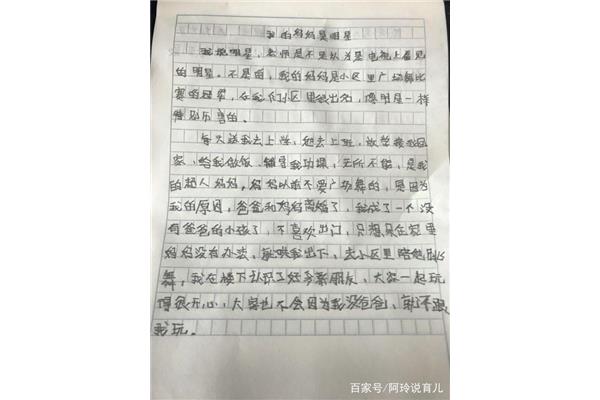 我的妈妈是明星
我说明星,老师是不是以为是电视上看见
的明星。不是的,我的妈妈是小区里广场舞比
赛的冠军,在我们小区里很出名,像明星一样
特别厉害的。
每天送我去上学,她去上班,放学接我回
家,给我做饭,辅导我功课,无所不能,是我
的超人妈妈,妈妈以前不爱广场舞的,是因为
我的原因,爸爸和妈妈离婚了,我成了一个没
有爸爸的小孩了,不喜欢出门,只想呆在家里
妈妈没有办法,就哄我出下,去小区里陪她跳
舞,我在楼下认识了好多新朋友,大家一起玩
得很开心,大家也不会因为我没爸爸,就不跟
我玩。
百家号/阿玲说育儿